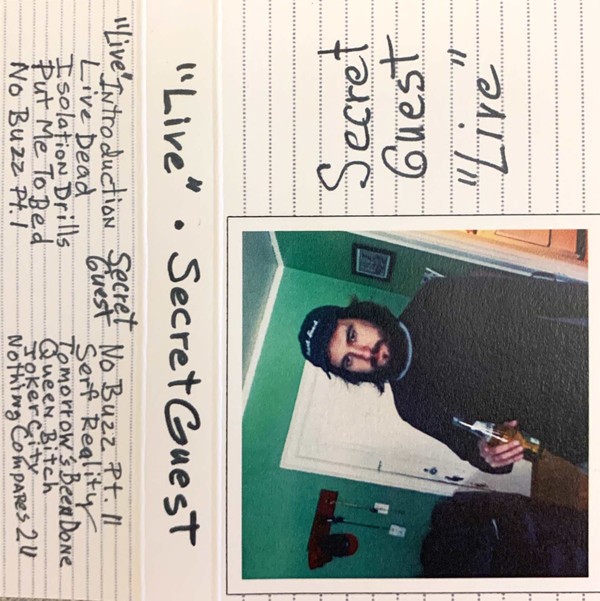 Secret
Guest
"Live"
"Live" · Secret Guest
"Live" Introduction
Live Dead
Isolation Drills
Put Me To Bed
No Buzz Pt. 1
Secret
Guest
No Buzz Pt. II
Serf Reality
Tomorrow's Been Done
Queen Bitch
Joker City
Nothing Compares 2 U